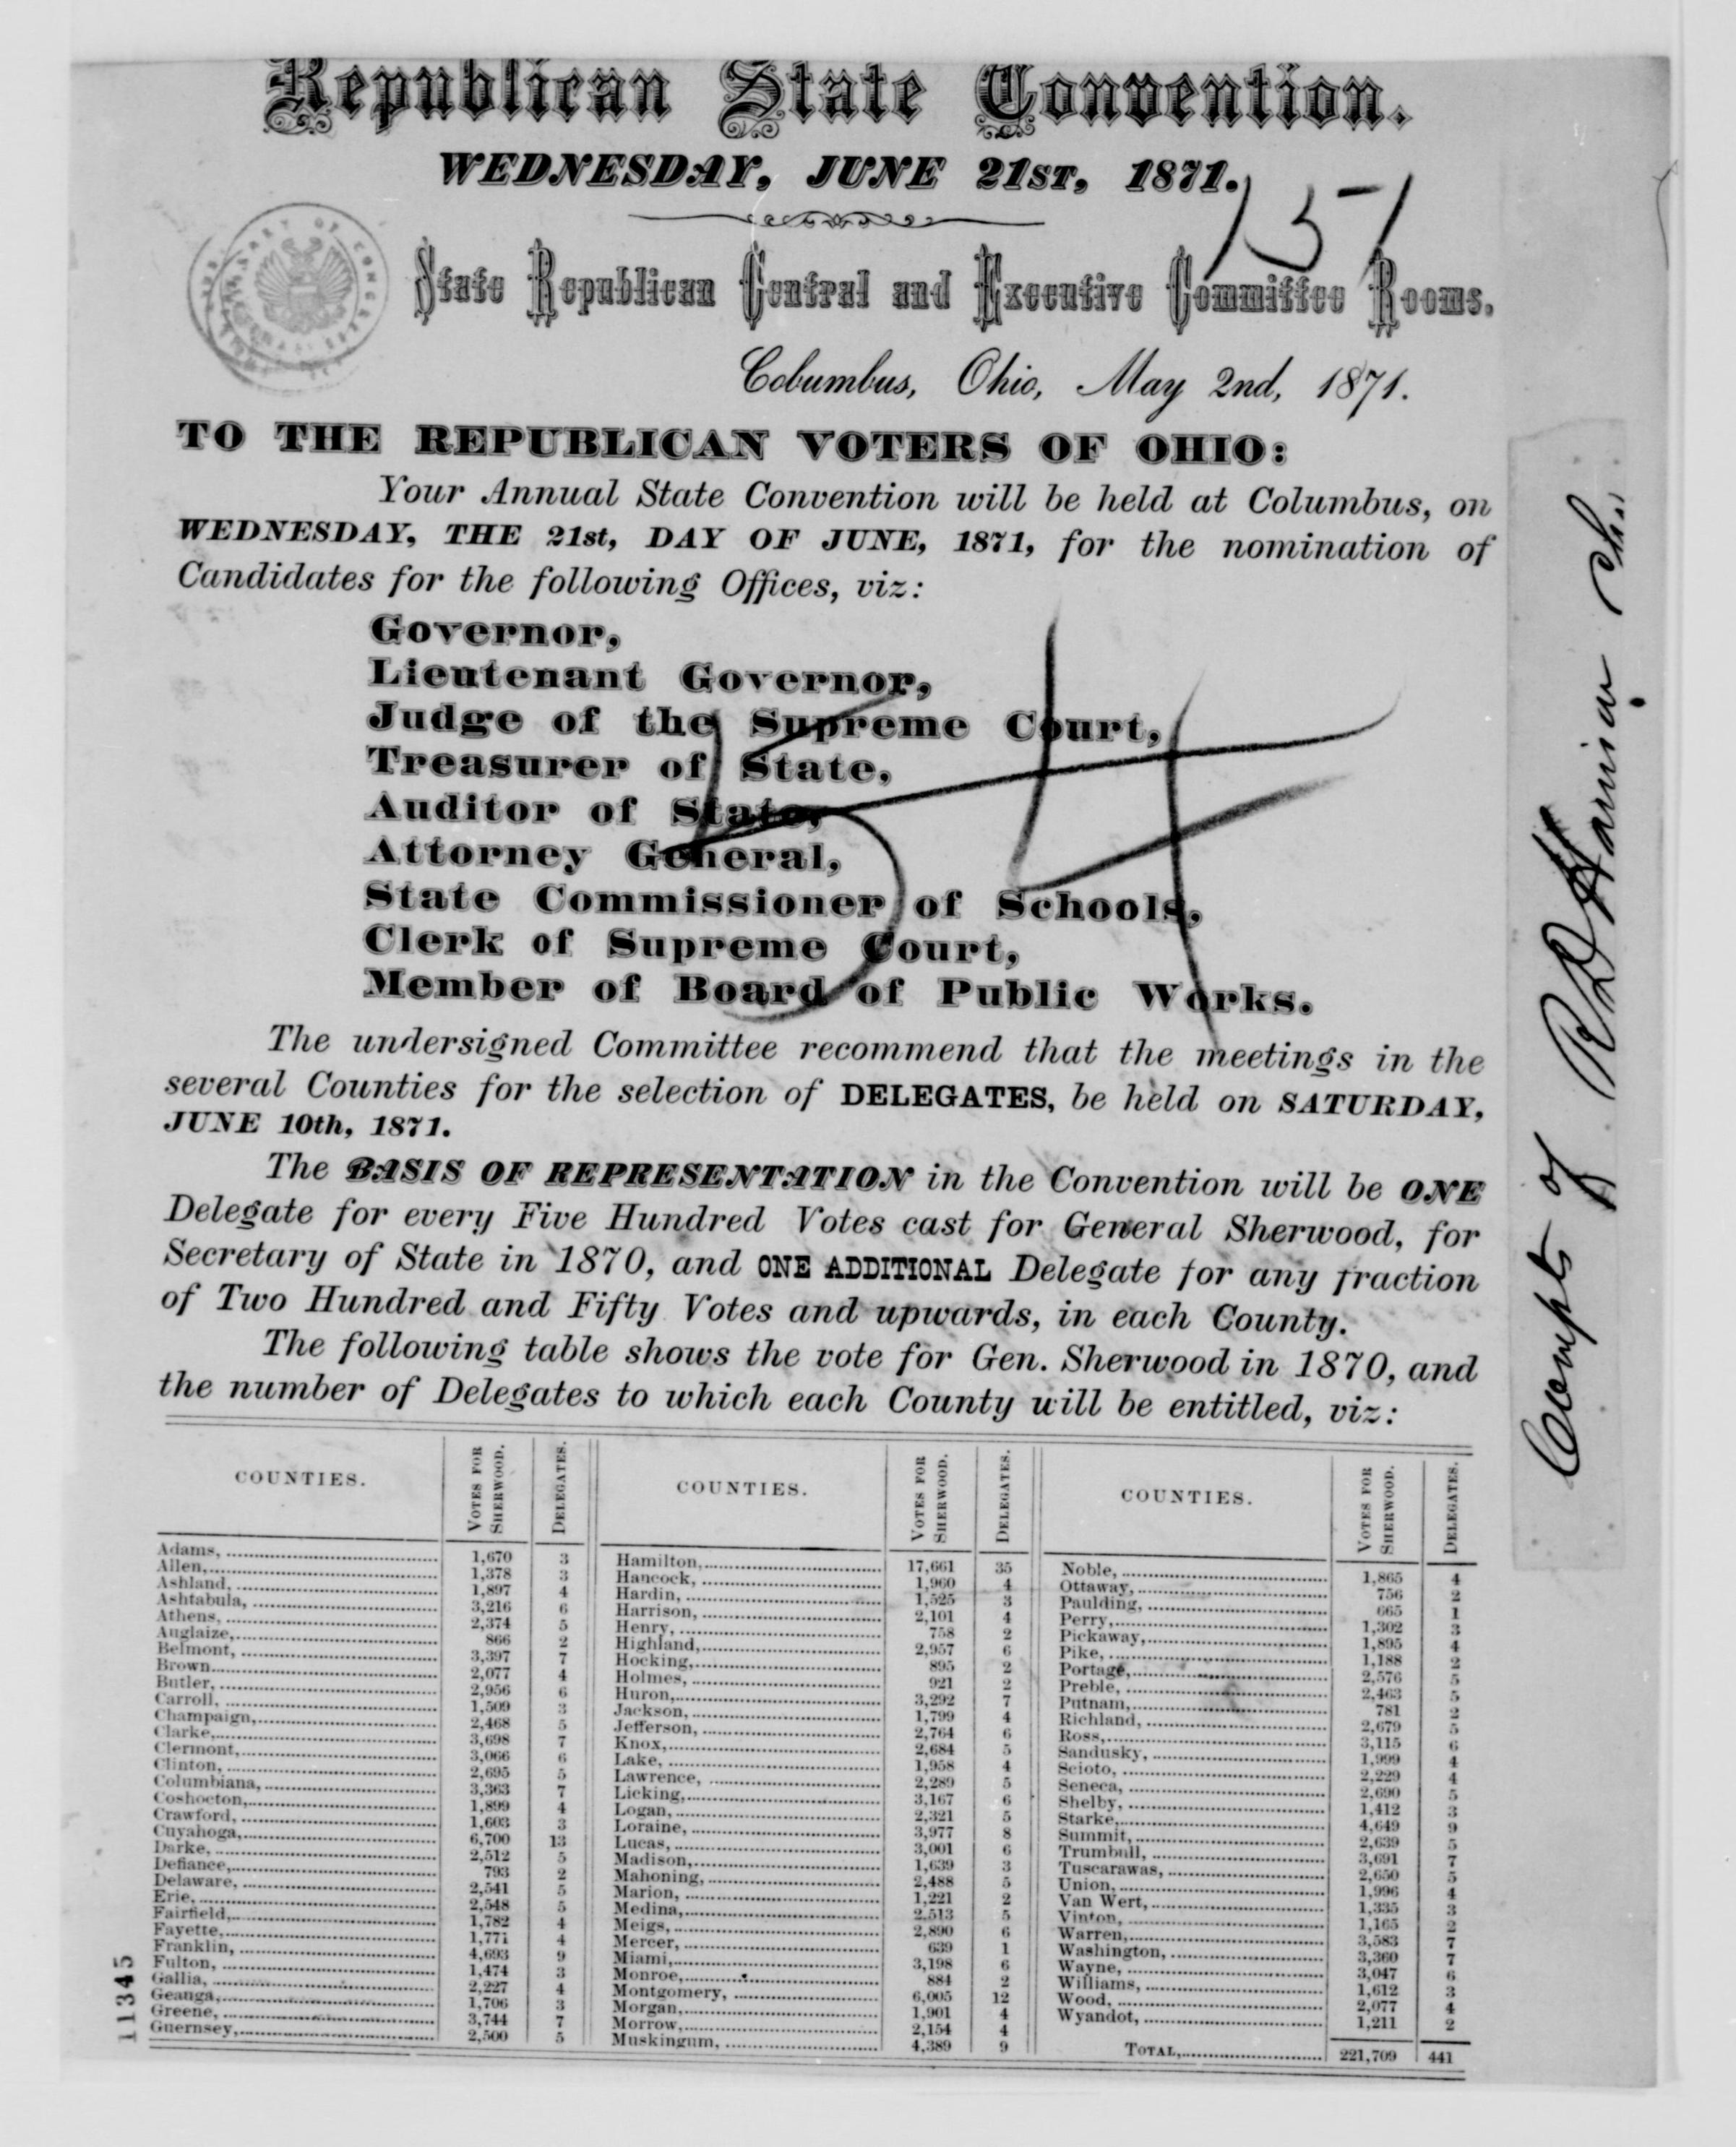 Republican State Convention.
WEDNESDAY, JUNE 21ST, 1871.
151
State Republican Central and Executive Committee Rooms.
Columbus, Ohio, May 2nd, 1871.
TO THE REPUBLICAN VOTERS OF OHIO:
Your Annual State Convention will be held at Columbus, on
WEDNESDAY, THE 21st, DAY OF JUNE, 1871, for the nomination of
Candidates for the following Offices, viz:
Governor,
Lieutenant Governor,
Judge of the Supreme Court,
Treasurer of State,
Auditor of State,
Attorney General,
State Commissioner of Schools,
Clerk of Supreme Court,
Member of Board of Public Works.
The undersigned Committee recommend that the meetings in the
several Counties for the selection of DELEGATES, be held on SATURDAY,
JUNE 10th, 1871.
The BASIS OF REPRESENTATION in the Convention will be ONE
Delegate for every Five Hundred Votes cast for General Sherwood, for
Secretary of State in 1870, and ONE ADDITIONAL Delegate for any fraction
of Two Hundred and Fifty Votes and upwards, in each County.
The following table shows the vote for Gen. Sherwood in 1870, and
the number of Delegates to which each County will be entitled, viz:
COUNTIES. VOTES FOR SHERWOOD. DELEGATES. COUNTIES. VOTES FOR SHERWOOD. DELEGATES. COUNTIES. VOTES FOR SHERWOOD. DELEGATES.
Adams, 1,670 3 Hamilton, 17,661 35 Noble, 1,865 4
Allen, 1,378 3 Hancock, 1,960 4 Ottaway, 756 2
Ashland, 1,897 4 Hardin, 1,525 3 Paulding, 665 1
Ashtabula, 3,216 6 Harrison, 2,101 4 Perry, 1,302 3
Athens, 2,374 5 Henry, 758 2 Pickaway, 1,895 4
Auglaize, 866 2 Highland, 2,957 6 Pike, 1,188 2
Belmont, 3,397 7 Hocking, 895 2 Portage, 2,576 5
Brown 2,077 4 Holmes, 921 2 Preble, 2,463 5
Butler, 2,956 6 Huron, 3,292 7 Putnam, 781 2
Carroll, 1,509 3 Jackson, 1,799 4 Richland, 2,679 5
Champaign, 2,468 5 Jefferson, 2,764 6 Ross, 3,115 6
Clarke, 3,698 7 Knox, 2,684 5 Sandusky, 1,999 4
Clermont, 3,066 6 Lake, 1,958 4 Scioto, 2,229 4
Clinton, 2,695 5 Lawrence, 2,289 5 Seneca, 2,690 5
Columbiana, 3,363 7 Licking, 3,167 6 Shelby, 1,412 3
Coshocton, 1,899 4 Logan, 2,321 5 Starke, 4,649 9
Crawford, 1,603 3 Loraine, 3,977 8 Summit, 2,639 5
Cuyahoga, 6,700 13 Lucas, 3,001 6 Trumbull, 3,691 7
Darke, 2,512 5 Madison, 1,639 3 Tuscarawas, 2,650 5
Defiance, 793 2 Mahoning, 2,488 5 Union, 1,996 4
Delaware, 2,541 5 Marion, 1,221 2 Van Wert, 1,335 3
Erie, 2,548 5 Medina, 2,513 5 Vinton, 1,165 2
Fairfield, 1,782 4 Meigs, 2,890 6 Warren, 3,583 7
Fayette, 1,771 4 Mercer, 639 1 Washington, 3,360 7
Franklin, 4,693 9 Miami, 3,198 6 Wayne, 3,047 6
Fulton, 1,474 3 Monroe, 884 2 Williams, 1,612 3
Gallia, 2,227 4 Montgomery, 6,005 12 Wood, 2,077 4
Geauga, 1,706 3 Morgan, 1,901 4 Wyandot, 1,211 2
Greene, 3,744 7 Morrow, 2,154 4
Guernsey, 2,500 5 Muskingum, 4,389 9 TOTAL, 221,709 441
11345
Compts of R D Harrison Chn